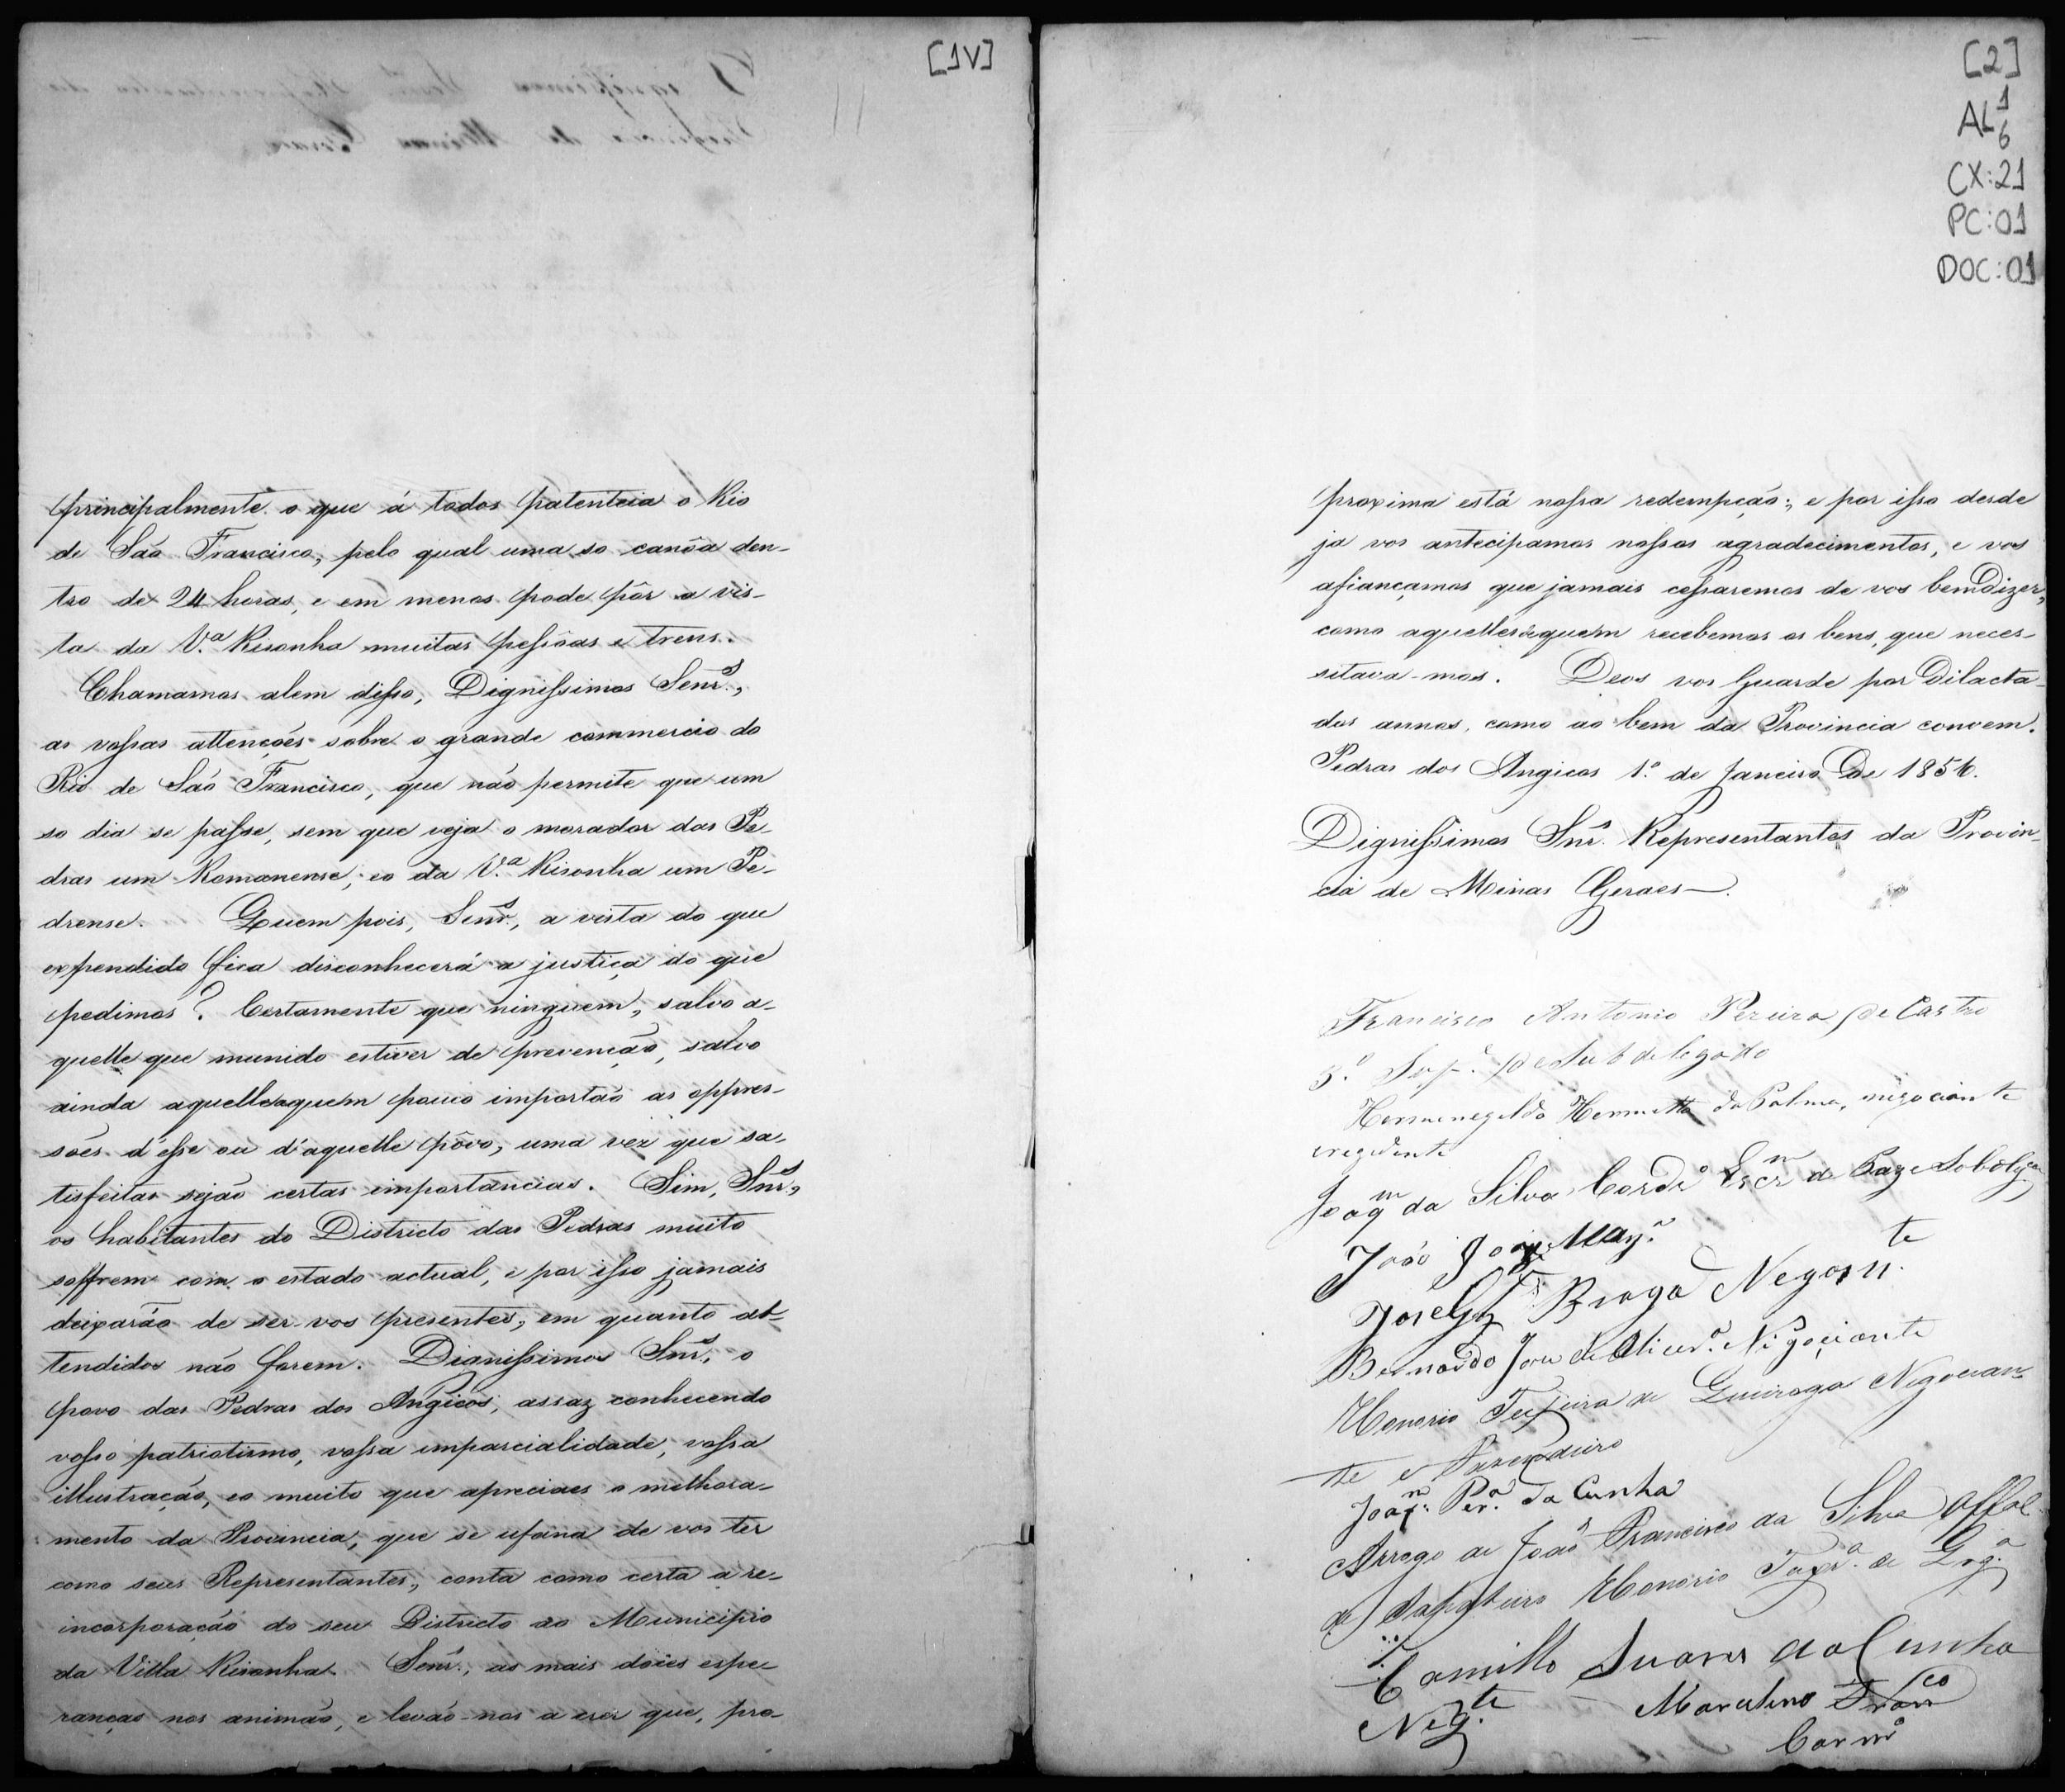 [1V]
principalmente o que á todos patenteia o Rio
de São Francisco, pelo qual uma so canôa den-
tro de 24 horas, e em menos pode pôr a vis-
ta da V.ª Risonha muitas pessôas e trens.
Chamamos alem disso, Dignissimos Senr.s,
as vossas attenções sobre o grande commercio do
Rio de São Francisco, que não permite que um
so dia se passe, sem que veja o morador das Pe-
dras um Romanense, eo da V.ª Risonha um Pe-
drense. Quem pois, Senr.s, a vista do que
expendido fica disconhecerá a justiça do que
pedimos? Certamente que ninguem, salvo a-
quelle que munido estiver de prevenção, salvo
ainda aquelleaquem pouco importão as oppres-
sões d'esse ou d'aquelle pôvo, uma vez que sa-
tisfeitas sejão certas importancias. Sim, Snr.s,
os habitantes do Districto das Pedras muito
soffrem com o estado actual, e por isso jamais
deixarão de ser-vos presentes, em quanto at-
tendidos não forem. Dignissimos Snr.s, o
povo das Pedras dos Angicos, assaz conhecendo
vosso patriotismo, vossa imparcialidade, vossa
illustração, eo muito que apreciaes o melhora-
mento da Provincia, que se ufana de vos ter
como seus Representantes, conta como certa a re-
incorporação do seu Districto ao Municipio
da Villa Risonha. Senr.s, as mais doces espe-
ranças nos animão, e levão-nos a crer que, pro-
[2]
AL 1
6
CX:21
PC:01
DOC:01
proxima está nossa redempção; e por isso desde
ja vos antecipamos nossos agradecimentos, e vos
afiançamos que jamais cessaremos de vos bemdizer,
como aquellesaquem recebemos os bens, que neces-
sitava-mos. Deos vos Guarde por Dilacta-
dos annos, como ao bem da Provincia convem.
Pedras dos Angicos 1.º de Janeiro De 1856.
Dignissimos Snr.s Representantes da Provin-
cia de Minas Geraes
Francisco Antonio Pereira de Castro
3.º Sup.e de Subdelegado
Hermenegildo da Palma, negociante
Joaqm da Silva Escrm de Paz e
João
Jose Braga Negoste
Bernardo Jose de Olivr.ª Nigociante
Honorio Teixeira de Quiroga Negocian-
te e Fazendeiro
Joaqm. Per.ª da Cunha
Arrogo de João Francisco da Silva Offal
de Sapateiro Honorio Teixr.ª de Qrg.ª
Camillo Suares da Cunha
Neg.te
Marcelino Franco